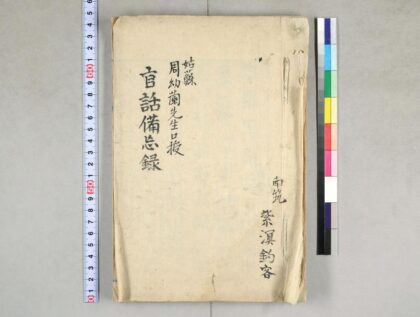 南筑
紫溟釣客
姑蘇
周幼蘭先生口授
官話備忘録